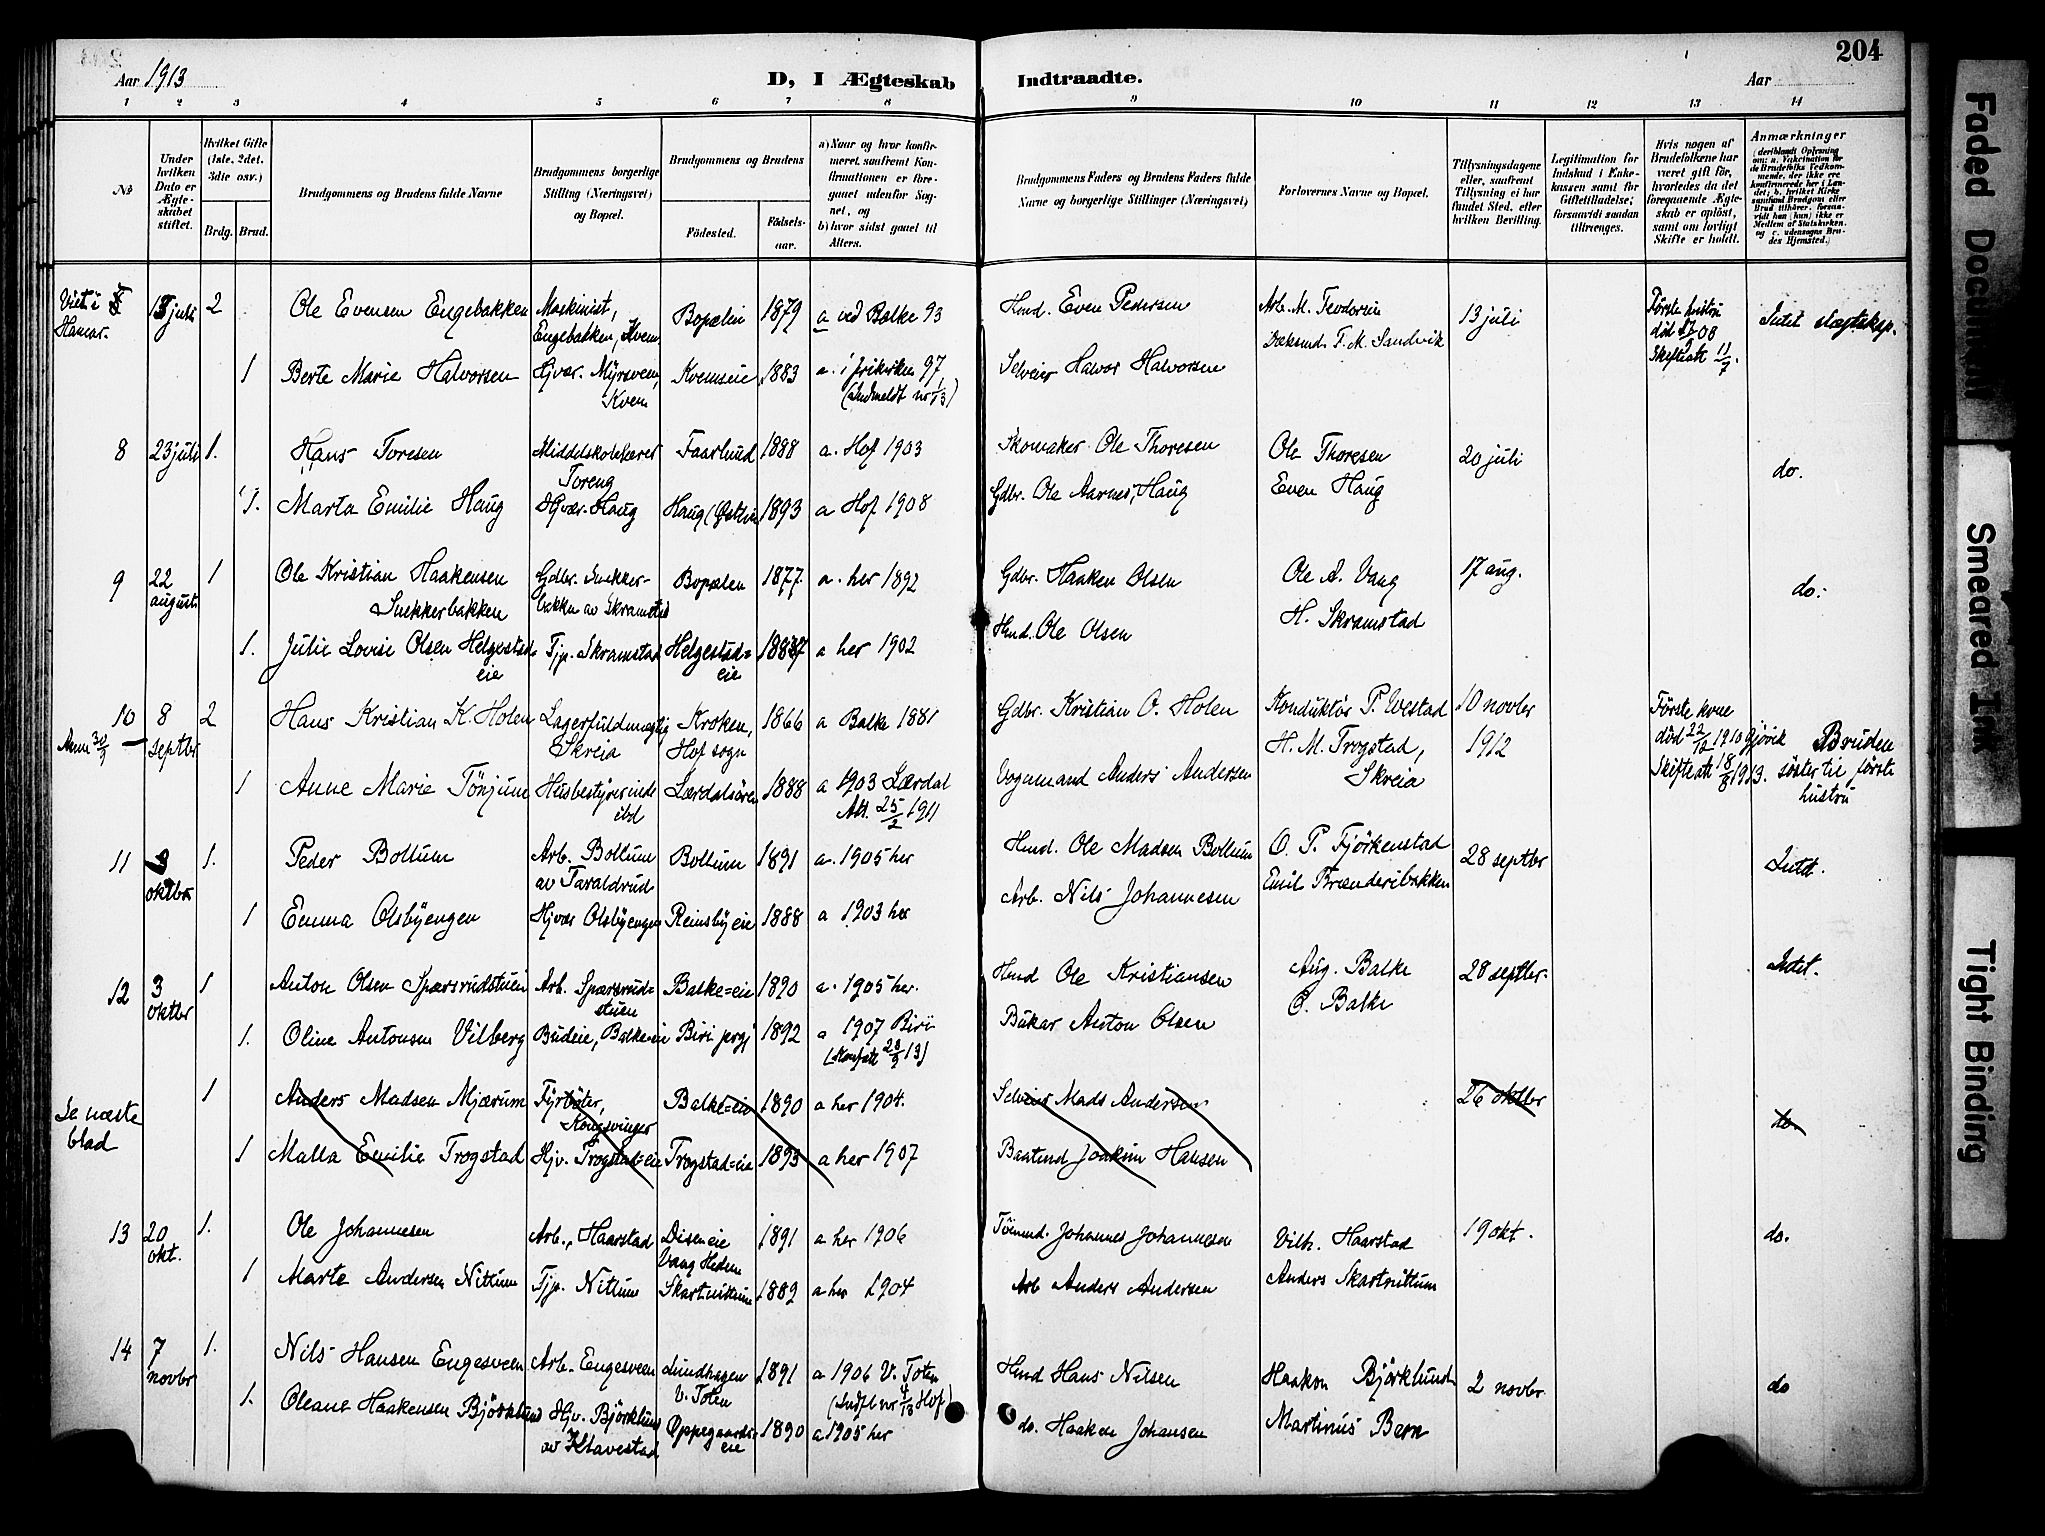 204
Aar 1913
D, I Ægteskab Indtraadte.
Aar
1 2 3 4 5 6 7 8 9 10 11 12 13 14
No
Under hvilken Dato er Ægteskabet stiftet.
Hvilket Gifte (1ste, 2det, 3die osv.)
Brdg. Brud.
Brudgommens og Brudens fulde Navne
Brudgommens borgerlige Stilling (Næringsvei) og Bopæl.
Brudgommens og Brudens
Fødested.
Fødselsaar.
a) Naar og hvor konfirmeret, saafremt Konfirmationen er foregaaet udenfor Sognet, og
b) hvor sidst gaaet til Alters.
Brudgommens Faders og Brudens Faders fulde Navne og borgerlige Stillinger (Næringsvei)
Forlovernes Navne og Bopæl.
Tillysningsdagene eller, saafremt Tillysning ei har fundet Sted, efter hvilken Bevilling.
Legitimation for Indskud i Enkekassen samt for Giftetilladelse, forsaavidt saadan tiltrænges.
Hvis nogen af Brudefolkene har været gift før, hvorledes da det foregaaende Ægteskab er opløst, samt om lovligt Skifte er holdt.
Anmærkninger
Viet i Hamar.
juli 2 Ole Evensen Engebakken Maskinist, Engebakken, Kvem Bopælen 1879 a ved Balke 93 Hmd. Even Pedersen 13 juli Første hustru død 08 Skifteatt 11/7. Intet slægtskap.
1 Berte Marie Halvorsen Hjvær. Myrsveen, Kvem Kvemseie 1883 a. i frikirken 97 Selveier Halvor Halvorsen
8 23 juli 1. Hans Toresen Middelskolelærer Toreng Faarlund 1888 a. Hof 1903 Skomaker Ole Thoresen Ole Thoresen 20 juli do.
1. Marta Emilie Haug Hjvær. Haug Haug 1893 a Hof 1908 Gdbr. Ole Aarnes, Haug Even Haug
9 22 august 1 Ole Kristian Haakensen Snekkerbakken Gdbr. Snekkerbakken av Skramstad Bopælen 1877 a. her 1892 Gdbr. Haaken Olsen Ole A. Vang 17 aug. do.
1. Julie Lovise Olsen Helgestadeie Tjp. Skramstad Helgestad=eie 1887 a her 1902 Hmd. Ole Olsen H. Skramstad
10 8 septbr 2 Hans Kristian K. Holen Lagerfuldmægtig Skreia Kroken, Hof sogn 1866 a Balke 1881 Gdbr. Kristian O. Holen Konduktør P. Westad 10 novbr 1912 Første kone død 22/12 1910 Gjøvik Skifteatt 18/8 1913. Bruden søster til første hustru
Anm 30/9
1 Anne Marie Tönjum Husbestyrerinde ibd Lærdalsøren 1888 a 1903 Lærdal Att. 25/2 1911 Vognmand Anders Andersen H. M. Trogstad, Skreia
11 3 oktbr 1. Peder Bollum Arb. Bollum av Taraldrud Bollum 1891 a. 1905 her Hmd. Ole Madsen Bollum O. P. Fjörkenstad 28 septbr Intet.
1 Emma Olsbyengen Hjvær Olsbyengen Reinsbyeie 1888 a 1903 her Arb. Nils Johannesen Emil Brænderibakken
12 3 oktbr 1 Anton Olsen Sparsrudstuen Arb. Sparsrud=stuen Balke=eie 1890 a. 1905 her. Hmd Ole Kristiansen Aug. Balke 28 septbr. Intet.
1. Oline Antonsen Vilberg Budeie, Balke=eie Biri prgj 1892 a 1907 Biri Bøkar Anton Olsen O. Balke
Se næste blad
1 Anders Madsen Mjærum Fyrbøter, Kongsvinger Balke=eie 1890 a her 1904. Selveier Mads Andersen 26 oktbr do.
1 Malla Emilie Trogstad Hjv. Trogstad=eie Trogstad=eie 1893 a her 1907 Baatmd Joakim Hansen
13 20 okt. 1. Ole Johannesen Arb., Haarstad Diseneie Vang Hedem 1891 a her 1906 Tömmd. Johannes Johannesen Vilh. Haarstad 19 okt. do.
1 Marte Andersen Nittum Tjp. Nittum Skartnittum 1889 a her 1904 Arb Anders Andersen Anders Skartnittum
14 7 novbr 1. Nils Hansen Engesveen Arb. Engesveen Lundhagen V. Toten 1891 a 1906 V. Toten Hmd Hans Nilsen Haakon Björklund 2 novbr do
1. Oleane Haakensen Björklund Hjv. Björklund av Klavestad Oppegaardseie 1890 a 1905 her do. Haaken Johansen Martinus Bern
Faded Document
Smeared Ink
Tight Binding